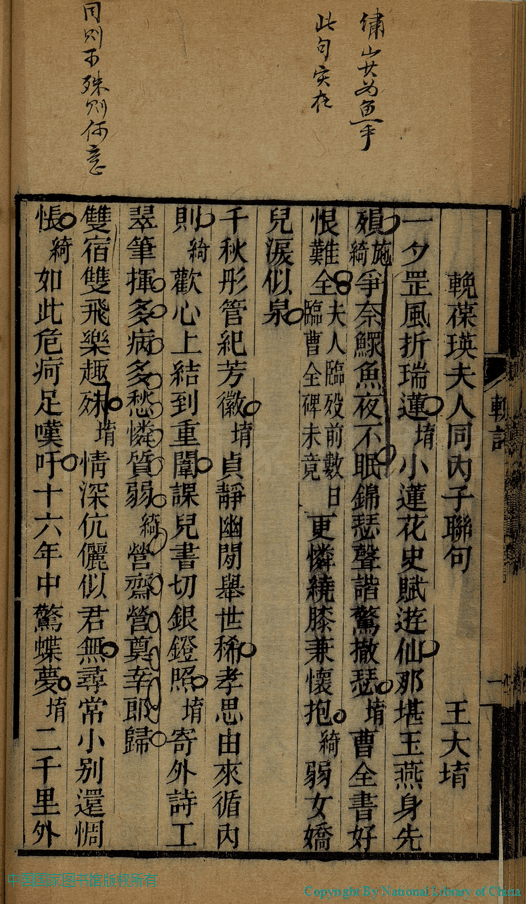 繡山其為魚乎
此句实在
同则不殊则何意
輓葆瑛夫人同內子聯句 王大堉
一夕罡風折瑞蓮堉小蓮花史賦遊仙那堪玉燕身先
殞施綺爭奈鰥魚夜不眠錦瑟聲諧驚撤瑟堉曹全書好
恨難全夫人臨歿前數日臨曹全碑未竟更憐繞膝兼懷抱綺弱女嬌
兒淚似泉
千秋彤管紀芳徽堉貞靜幽閒舉世稀孝思由來循內
則綺歡心上結到重闈課兒書切銀鐙照堉寄外詩工
翠筆揮多病多愁憐質弱綺營齋營奠幸郎歸
雙宿雙飛樂趣殊堉情深伉儷似君無尋常小別還惆
悵綺如此危疴足嘆吁十六年中驚蝶夢堉二千里外
輓詩
一
中国国家图书馆版权所有
Copyright By National Library of China